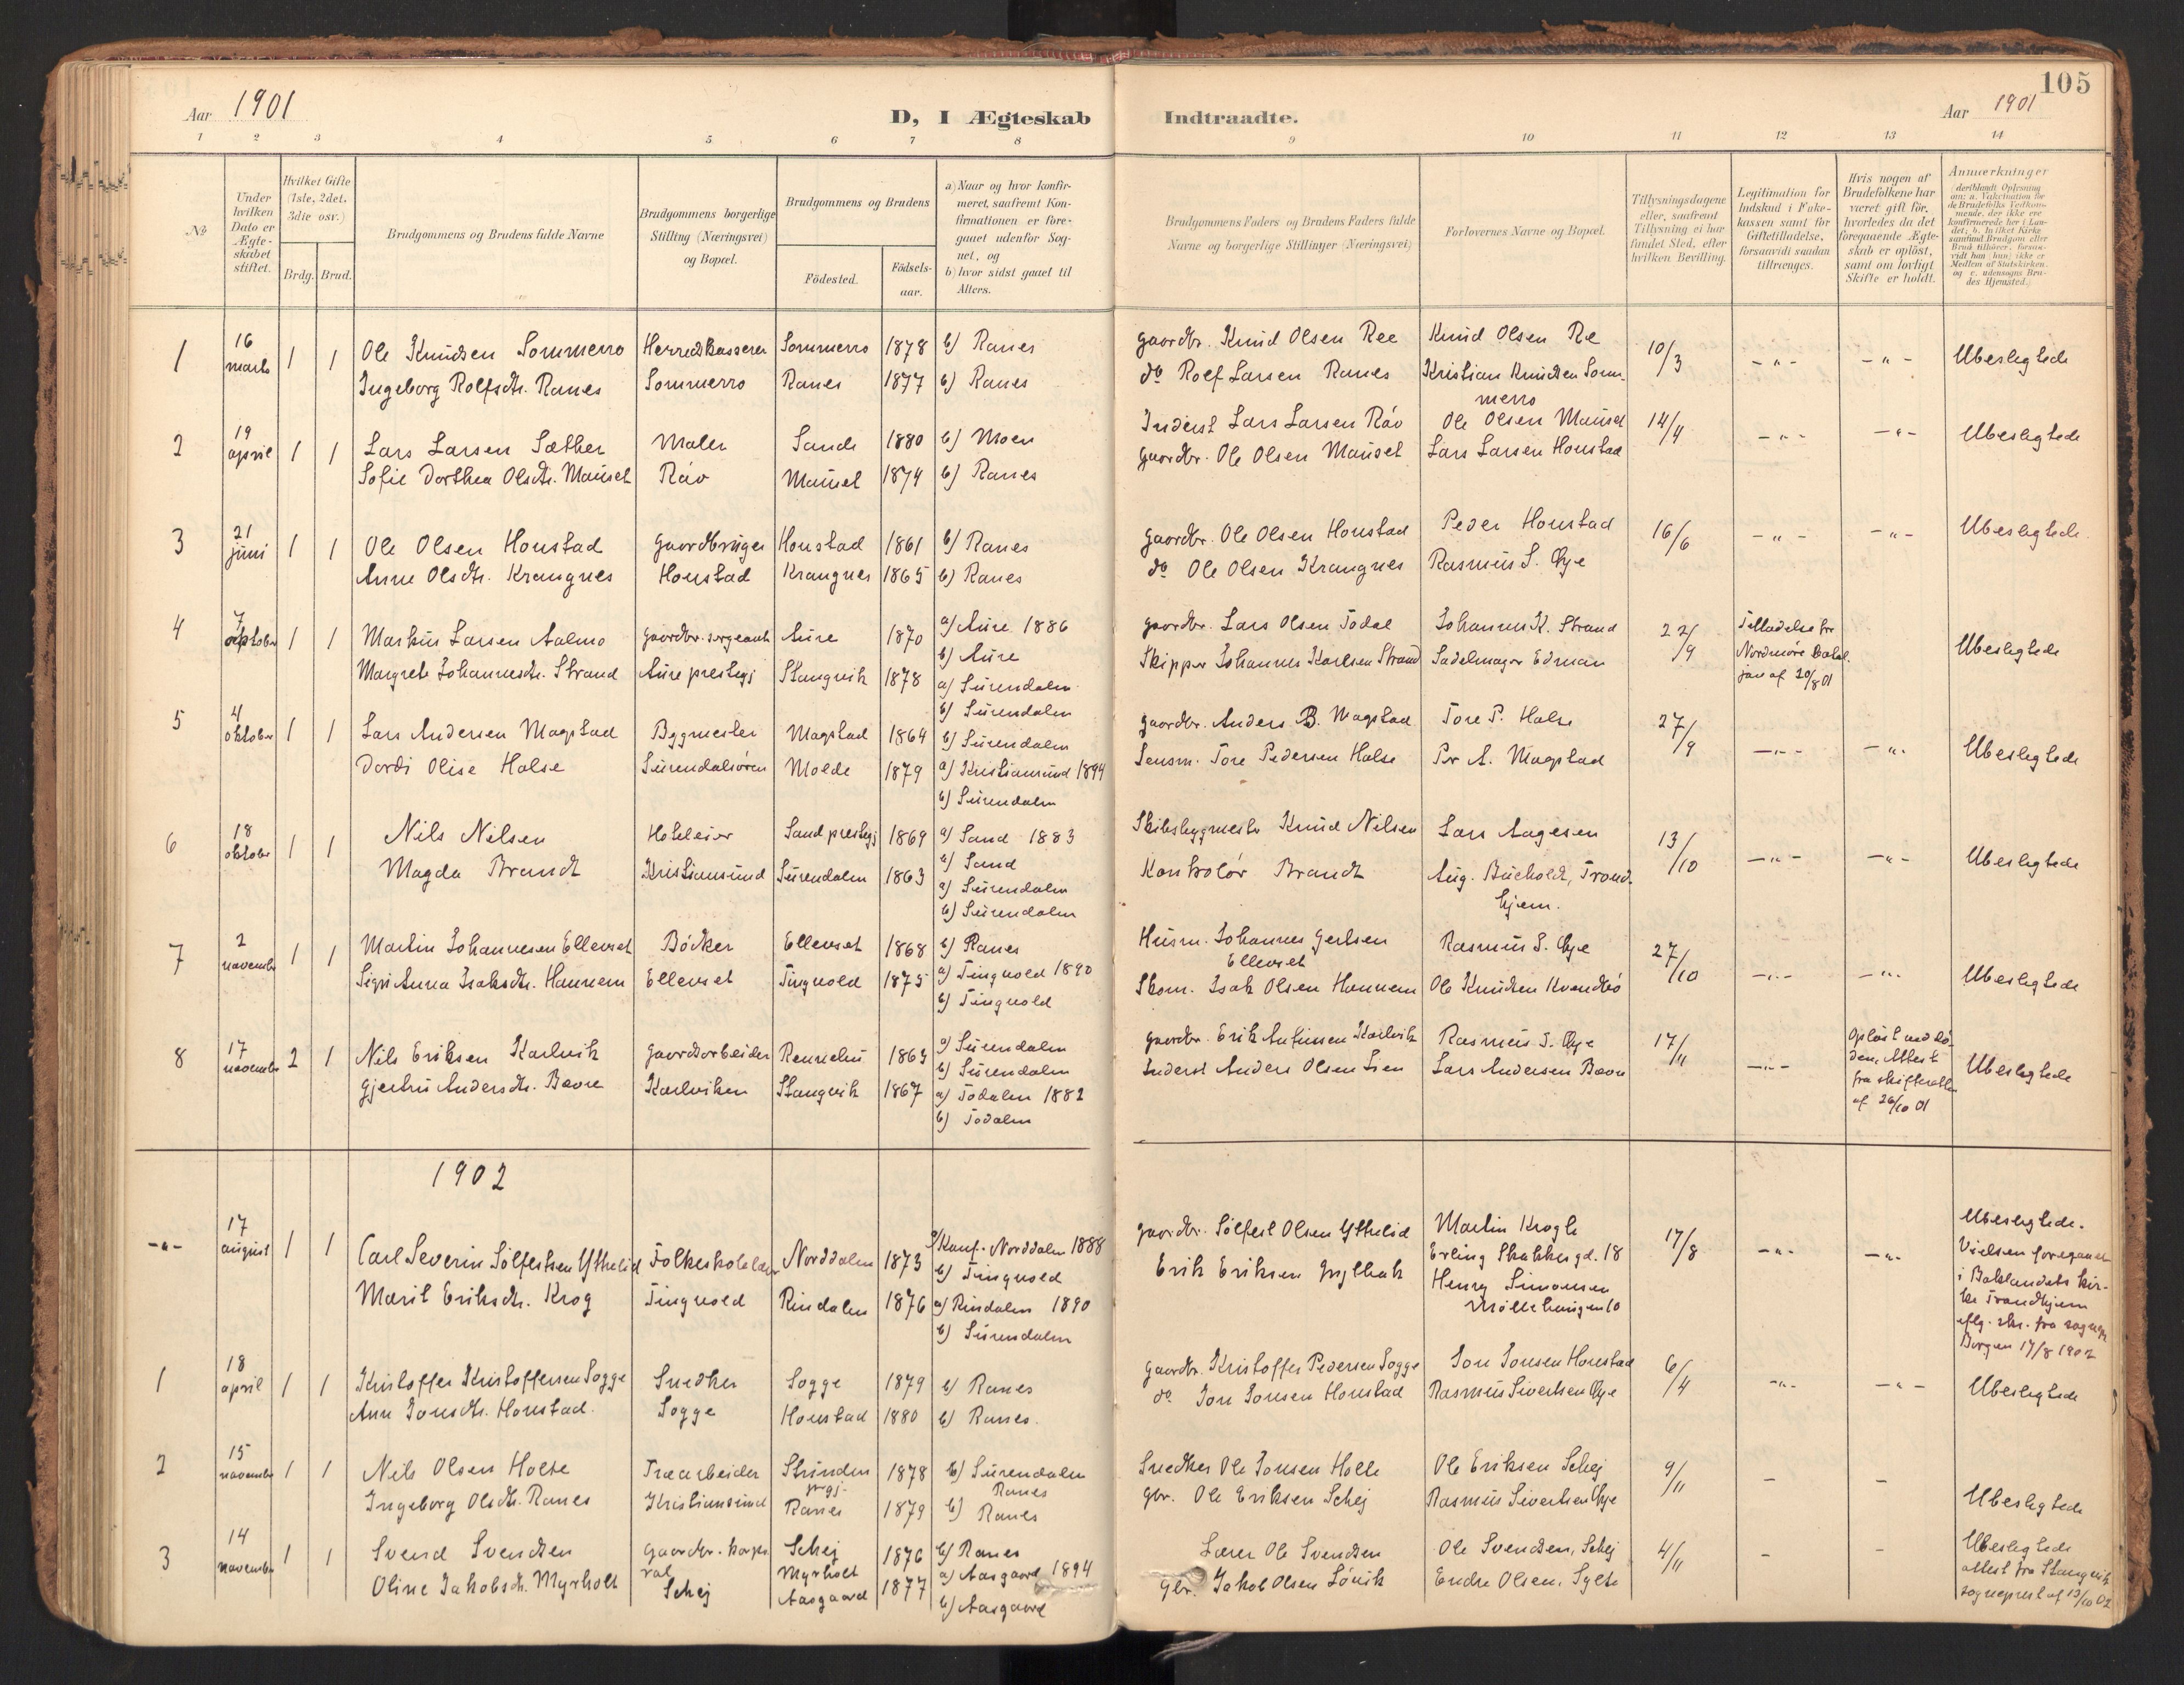 105
Aar 1901
D, I Ægteskab Indtraadte.
Aar 1901
1 2 3 4 5 6 7 8 9 10 11 12 13 14
№
Under hvilken Dato er Ægteskabet stiftet.
Hvilket Gifte (1ste, 2det, 3die osv.)
Brdg. Brud.
Brudgommens og Brudens fulde Navne
Brudgommens borgerlige Stilling (Næringsvei) og Bopæl.
Brudgommens og Brudens
Födested.
Födsels-aar.
a) Naar og hvor konfirmeret, saafremt Konfirmationen er foregaaet udenfor Sognet, og
b) hvor sidst gaaet til Alters.
Brudgommens Faders og Brudens Faders fulde Navne og borgerlige Stillinger (Næringsvei)
Forlovernes Navne og Bopæl.
Tillysningsdagene eller, saafremt Tillysning ei har fundet Sted, efter hvilken Bevilling.
Legitimation for Indskud i Enkekassen samt for Giftetilladelse, forsaavidt saadan tiltrænges.
Hvis nogen af Brudefolkene har været gift för, hvorledes da det foregaaende Ægteskab er oplöst, samt om lovligt Skifte er holdt.
Anmærkninger
1 16 marts 1 1 Ole Knudsen Sommerro Herredskasserer Sommerro 1878 b) Ranes gaardbr. Knud Olsen Ree Knud Olsen Re 10/3 -"- -"- Ubeslegtede
Ingeborg Rolfsdtr. Ranes Sommerro Ranes 1877 b) Ranes do Rolf Larsen Ranes Kristian Knudsen Sommerro
2 19 april 1 1 Lars Larsen Sæther Maler Sande 1880 b) Moen Inderst Lars Larsen Råv Ole Olsen Mauset 14/4 -"- -"- Ubeslegtede
Sofie Dorthea Olsdtr. Mauset Råv Mauset 1874 b) Ranes gaardbr. Ole Olsen Mauset Lars Larsen Honstad
3 21 juni 1 1 Ole Olsen Honstad gaardbruger Honstad 1861 b) Ranes gaardbr. Ole Olsen Honstad Peder Honstad 16/6 -"- -"- Ubeslegtede.
Anne Olsdtr. Krangnes Honstad Krangnes 1865 b) Ranes do Ole Olsen Krangnes Rasmus S. Øye
4 7 oktober 1 1 Markus Larsen Aalmo gaardbr. sergeant Aure 1870 a) Aure 1886 gaardbr. Lars Olsen Todal Johannes K. Strand 22/9 Tilladelse fr Ubeslegtede
b) Aure Nordmøre Batal.
Margrete Johannesdtr. Strand Aure prestegj Stangvik 1878 a) Surendalen Skipper Johannes Karlsen Strand Sadelmager Edman jon af 20/8 01
b) Surendalen
5 4 oktober 1 1 Lars Andersen Magstad Bygmester Magstad 1864 b) Surendalen gaardbr. Anders B. Magstad Tore P. Halse 27/9 -"- -"- Ubeslegtede
Dordi Olise Halse Surendalsøren Molde 1879 a) Kristiansund 1894 Lensm. Tore Pedersen Halse Per A. Magstad
b) Surendalen
6 18 oktober 1 1 Nils Nilsen Hoteleier Sand prestegj 1869 a) Sand 1883 Skibsbygmester Knud Nilsen Lars Aagesen 13/10 -"- -"- Ubeslegtede
b) Sand
Magda Brandt Kristiansund Surendalen 1863 a) Surendalen Kontrolør Brandt Aug. Bucholdt, Trondhjem.
b) Surendalen
7 2 november 1 1 Martin Johannesen Ellevset Bødker Ellevset 1868 b) Ranes Husm. Johannes Gertsen Ellevset Rasmus S. Øye 27/10 -"- -"- Ubeslegtede
Sigri Anna Isaksdtr. Hannem Ellevset Tingvold 1875 a) Tingvold 1890 Skom. Isak Olsen Hannem Ole Knudsen Kvendbø
b) Tingvold
8 17 november 2 1 Nils Eriksen Karlvik gaardsarbeider 1863 a) Surendalen gaardbr. Erik Karlvik Rasmus S. Øye 17/11 -"- Opløst ved døden, Attest fra skifteretten af 26/10 01 Ubeslegtede
b) Surendalen
Gjertru Andersdtr. Bævre Karlviken Stangvik 1867 a) Todalen 1882 Inderst Anders Olsen Lien Lars Andersen Bævre
b) Todalen
1902
-"- 17 august 1 1 Carl Severin Sölfestsen Ytterlid Folkeskolelærer Norddalen 1873 a/ Konf. Norddalen 1888 gaardbr. Sölfest Olsen Ytterlid Martin Krogh 17/8 -"- -"- Ubeslegtede.
b) Tingvold Erling Skakkesgd. 18 Vielsen foregaaet
Marit Eriksdtr. Krog Tingvold Rindalen 1876 a) Rindalen 1890 Erik Eriksen Henry Simonsen i Baklandets kirke Trondhjem
b) Surendalen Møllebakken 10 iflg. skr. fra sognepr. 17/8 1902
1 18 april 1 1 Kristoffer Kristoffersen Sogge Snedker Sogge 1879 b) Ranes gaardbr. Kristoffer Pedersen Sogge Jon Jonsen Honstad 6/4 -"- -"- Ubeslegtede
Ane Jonsdtr. Honstad. Sogge Honstad 1880 b) Ranes. do Jon Jonsen Honstad Rasmus Sivertsen Øye
2 15 november 1 1 Nils Olsen Holte Træarbeider Strinden prgj. 1878 b) Surendalen Ranes Snedker Ole Jonsen Holte Ole Eriksen Schej 9/11 - - Ubeslegtede
Ingeborg Olsdtr. Ranes Kristiansund Ranes 1879 b) Ranes Gbr. Ole Eriksen Schej Rasmus Sivertsen Øye
3 14 november 1 1 Svend Svendsen gaardbr. korporal Schej 1876 b) Ranes Lærer Ole Svendsen Ole Svendsen, Schej 4/11 - - Ubeslegtede
Oline Jakobsdtr. Myrholt Schej Myrholt Aasgaard 1877 a) Aasgaard 1894 Gbr. Jakob Olsen Løvik Endre Olsen, Sylte attest fra Stangvik
b) Aasgaard sogneprest af 13/10 02